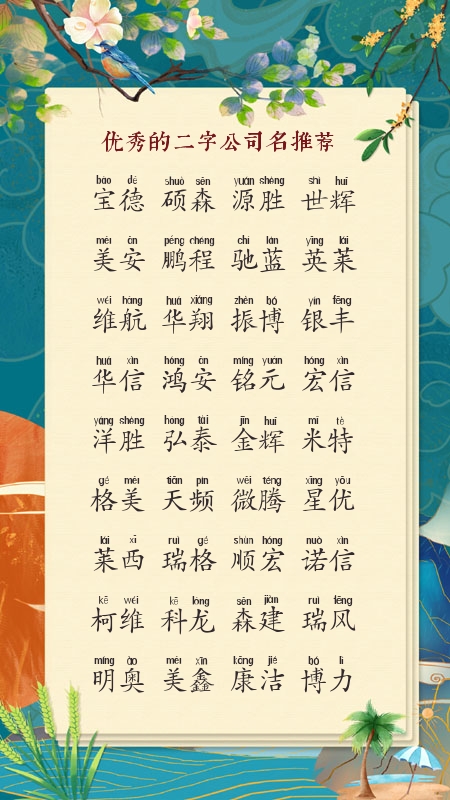 优秀的二字公司名推荐
bǎo dé shuò sēn yuán shèng shì huī
宝德 硕森 源胜 世辉
měi ān péng chéng chí lán yīng lái
美安 鹏程 驰蓝 英莱
wéi háng huá xiáng zhèn bó yín fēng
维航 华翔 振博 银丰
huá xìn hóng ān míng yuán hóng xìn
华信 鸿安 铭元 宏信
yáng shèng hóng tài jīn huī mǐ tè
洋胜 弘泰 金辉 米特
gé měi tiān pín wēi téng xīng yōu
格美 天频 微腾 星优
lái xī ruì gé shùn hóng nuò xìn
莱西 瑞格 顺宏 诺信
kē wéi kē lóng sēn jiàn ruì fēng
柯维 科龙 森建 瑞风
míng ào měi xīn kāng jié bó lì
明奥 美鑫 康洁 博力